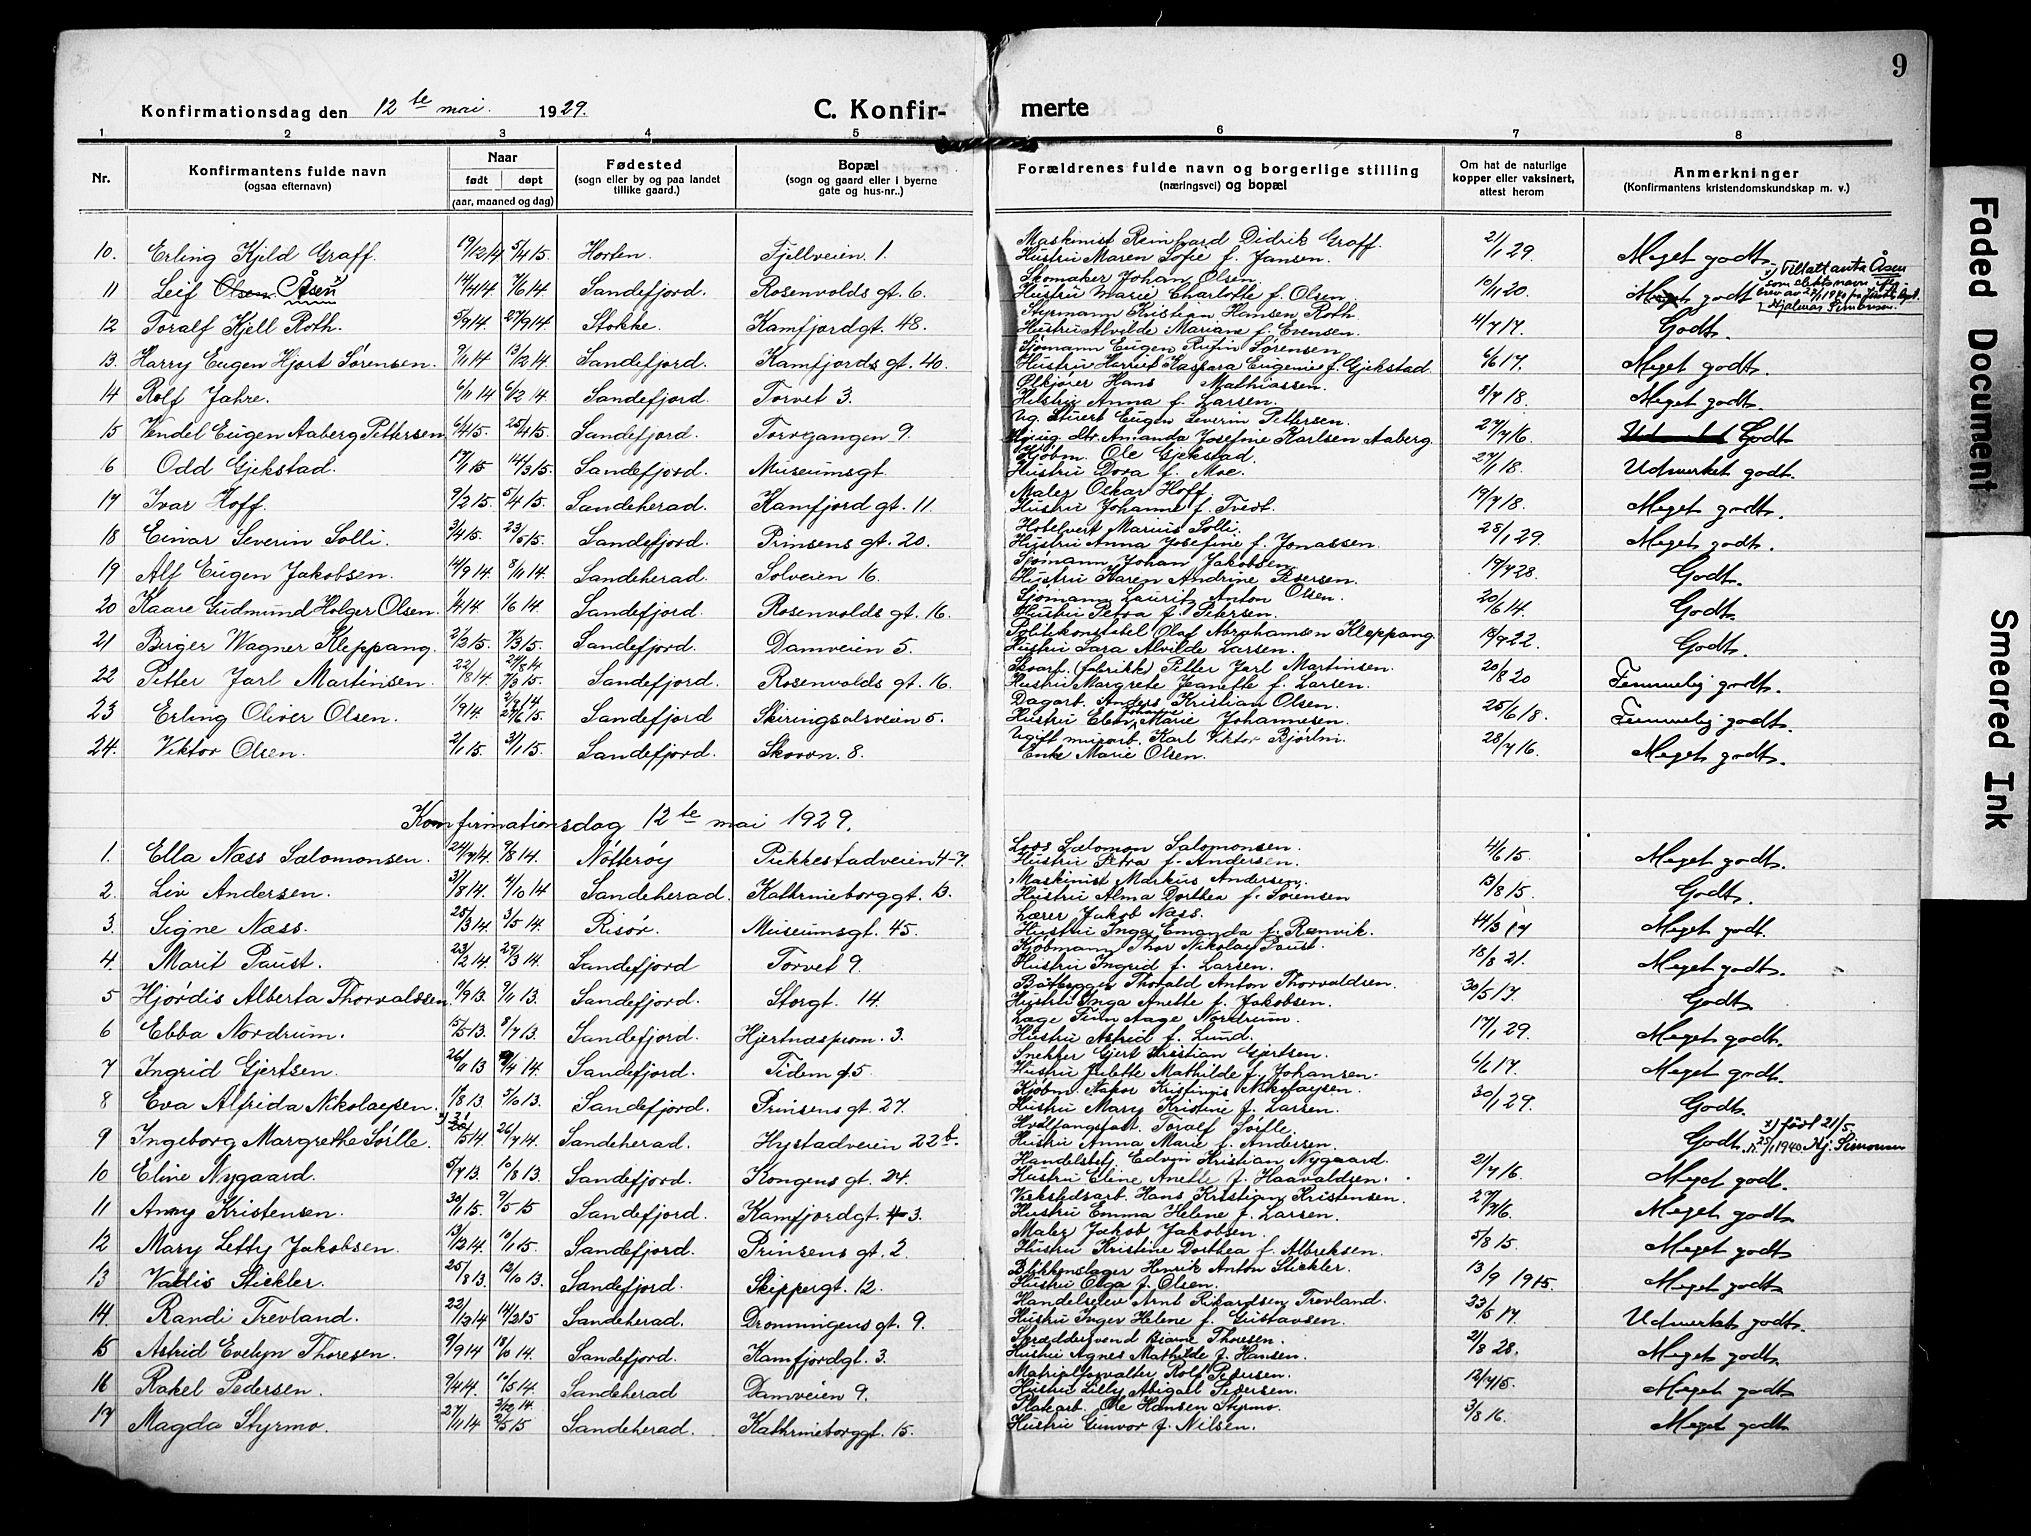 9
Konfirmationsdag den 12te mai. 1929. C. Konfirmerte
1 2 3 4 5 6 7 8
Nr. Konfirmantens fulde navn (ogsaa efternavn) Naar født døpt (aar, maaned og dag) Fødested (sogn eller by og paa landet tillike gaard.) Bopæl (sogn og gaard eller i byerne gate og hus-nr..) Forældrenes fulde navn og borgerlige stilling (næringsvei) og bopæl Om hat de naturlige kopper eller vaksinert, attest herom Anmerkninger (Konfirmantens kristendomskundskap m. v.)
10. Erling Kjeld Graff. 19/12 14 5/4 15 Horten. Fjellveien 1. Maskinist Reinhard Didrik Graff. Hustru Maren Sofie f. Jansen. 2/1 29. Meget godt.
11 Leif Olsen Åsen x) 14/4 14. 7/6 14 Sandefjord. Rosenvolds gt. 6. Skomaker Johan Olsen Hustru Marie Charlotte f. Olsen. 10/1 20. Meget godt x) Tillatt anta Åsen som slektsnavn Hjalmar Simonsen.
12 Toralf Kjell Roth. 5/9 14. 27/9 14 Stokke. Kamfjordgt. 48. Styrmann Kristian Hansen Roth. Hustru Alvilde Mariane f. Evensen. 4/7 17. Godt.
13. Harry Eugen Hjort Sørensen. 9/1 14 13/2 14. Sandefjord. Kamfjords gt. 40. Sjømann Eugen Rufin Sørensen Hustru Harriet Kaspara Eugenie f. Gjekstad. 6/6 17. Meget godt.
14 Rolf Jahre. 6/11 14 6/2 14. Sandefjord. Torvet 3. Ølkjører Hans Mathiassen. Hustru Anna f. Larsen. 8/7 18. Meget godt.
15 Vendel Eugen Aaberg Pettersen 6/4 15. 25/4 15. Sandefjord. Torvgangen 9. Ug. Stuert Eugen Severin Pettersen. Amanda Josefine Karlsen Aaberg. 27/7 16. Godt
6 Odd Gjekstad. 17/1 15 14/3 15. Sandefjord. Museumsgt. Kjøbm. Ole Gjekstad. Hustru Dora f. Moe. 27/1 18. Udmerket godt.
17 Ivar Hoff. 9/2 15. 5/4 15. Sandeherad. Kamfjord gt. 11. Maler Oskar Hoff. Hustru Johanne f. Tvedt. 19/7 18. Meget godt.
18 Einar Severin Solli. 3/4 15. 23/5 15. Sandefjord. Prinsens gt. 20. Hotelvert Marius Solli. Hustru Anna Josefine f. Jonassen. 28/1 29. Meget godt.
19 Alf Eugen Jakobsen. 14/9 14. 8/11 14. Sandeherad. Solveien 16. Sjømann Johan Jakobsen Hustru Karen Andrine Pedersen. 19/7 28. Godt.
20 Kaare Gudmund Holger Olsen. 1/4 14. 1/6 14. Sandefjord. Rosenvolds gt. 16. Sjømann Lauritz Anton Olsen. Hustru Petra f. Petersen. 20/6 14. Godt.
21 Birger Wagner Kleppang. 2/2 15. 7/3 15. Sandefjord. Damveien 5. Politikonstabel Olaf Abrahamsen Kleppang. Hustru Sara Alvilde Larsen. 18/9 22. Godt.
22 Petter Jarl Martinsen. 22/8 14. 24/8 14 7/3 15. Sandefjord. Rosenvolds gt. 16. Skoarb. (fabrikk) Petter Jarl Martinsen. Hustru Margrete Jeanette f. Larsen. 20/8 20 Temmelig godt.
23 Erling Oliver Olsen. 1/9 14. 27/6 15. Sandefjord Skiringsalsveien 5. Dagarb. Anders Kristian Olsen. Hustru Elen Johanne Marie Johannesen. 25/6 18. Temmelig godt.
24. Viktor Olsen. 2/1 15. 3/1 15. Sandefjord. Skovvn. 8. Ugift murarb. Karl Viktor Bjørlni. Enke Marie Olsen. 28/7 16. Meget godt.
Konfirmationsdag 12te mai 1929.
1. Ella Næss Salomonsen. 24/7 14. 9/8 14. Nøtterøy Pukkestadveien 4-7. Loos Salomon Salomonsen. Hustru Petra f. Andersen. 4/6 15. Meget godt.
2. Liv Andersen. 3/8 14. 4/10 14 Sandeherad. Kathrineborggt. 13. Maskinist Markus Andersen. Hustru Alma Dorthea f. Sørensen 13/8 15. Godt.
3. Signe Næss. 28/3 14. 3/5 14. Risør. Museumsgt. 45. Lærer Jakob Næss. Hustru Inga Emanda f. Rønvik. 14/3 17 Meget godt.
4. Marit Paust. 23/2 14. 29/3 14. Sandefjord Torvet 9. Kjøbmann Thor Nikolay Paust. Hustru Ingrid f. Larsen. 18/8 21. Meget godt.
5 Hjørdis Alberta Thorvaldsen. 9/9 13. 9/11 13. Sandefjord. Storgt. 14. Båtbygger Thorald Anton Thorvaldsen. Hustru Inga Anette f. Jakobsen. 30/5 17. Godt
6 Ebba Nordrum. 15/5 13. 8/7 13. Sandefjord. Hjertnæsprom. 3. Læge Finn Aage Nordrum. Hustru Astrid f. Lund. 17/1 29. Meget godt.
7 Ingrid Gjertsen. 26/11 13 4/4 14. Sandefjord. Tidem g. 5. Snekker Gjert Kristian Gjertsen. Hustru Julette Mathilde f. Johansen. 6/1 17. Meget godt.
8 Eva Alfrida Nikolaysen. 18/8 13. 5/10 13. Sandefjord. Prinsens gt. 27. Kjøbm. Aapor Kristinus Nikolaysen. Hustru Mary Kristine f. Larsen. 30/1 29. Godt.
9 Ingeborg Margrethe Sørlle. x) 21/5 14. 26/7 14. Sandeherad. Hystadveien 22b. Hvalfangstarb. Toralf Sørlle. Hustru Anna Marie f. Andersen. Godt. x) født 21/5. 25/1 1940 Hj. Simonsen
10 Eline Nygaard. 5/7 13. 10/8 13. Sandefjord. Kongens gt. 24. Handelsbetj. Edvin Kristian Nygaard. Hustru Eline Anette f. Haavaldsen. 2/7 16. Meget godt.
11 Anny Kristensen. 30/1 15. 9/5 15 Sandefjord. Kamfjordgt. 3. Verkstedsarb. Hans Kristian Kristensen. Hustru Emma Helene f. Larsen. 27/7 16. Meget godt
12 Mary Letty Jakobsen. 13/12 14. 10/1 15. Sandefjord. Prinsens gt. 2. Maler Jakob Jakobsen. Hustru Kristine Dorthea f. Albreksen. 5/8 15. Meget godt
13 Valdis Stickler. 25/8 13. 12/10 13. Sandefjord. Skippergt. 12. Blikkenslager Henrik Anton Stickler. Hustru Olga f. Olsen. 13/9 1915. Meget godt
14. Randi Trevland. 22/12 14 14/2 15 Sandeherad. Dronningens gt. 9. Handelselev Arnt Rikardsen Trevland. Hustru Inger Helene f. Gustavsen. 23/5 17. Udmerket godt.
15 Astrid Evelyn Thoresen. 9/9 14 18/10 14. Sandefjord. Kamfjordgt. 3. Skræddersvend Bjarne Thoresen. Hustru Agnes Mathilde f. Hansen. 21/8 28. Meget godt.
16 Rakel Pedersen. 9/4 14. 10/5 14. Sandeherad Damveien 9. Matrialforvalter Rolf Pedersen. Hustru Lilly Abigael Pedersen. 12/7 15. Meget godt
17 Magda Styrmo. 27/11 14 2/5 15 Sandeherad. Kathrineborggt. 15. Plakarb. Ole Hansen Styrmo. Hustru Gunvor f. Nilsen. 3/8 16. Meget godt
Faded Document
Smeared Ink